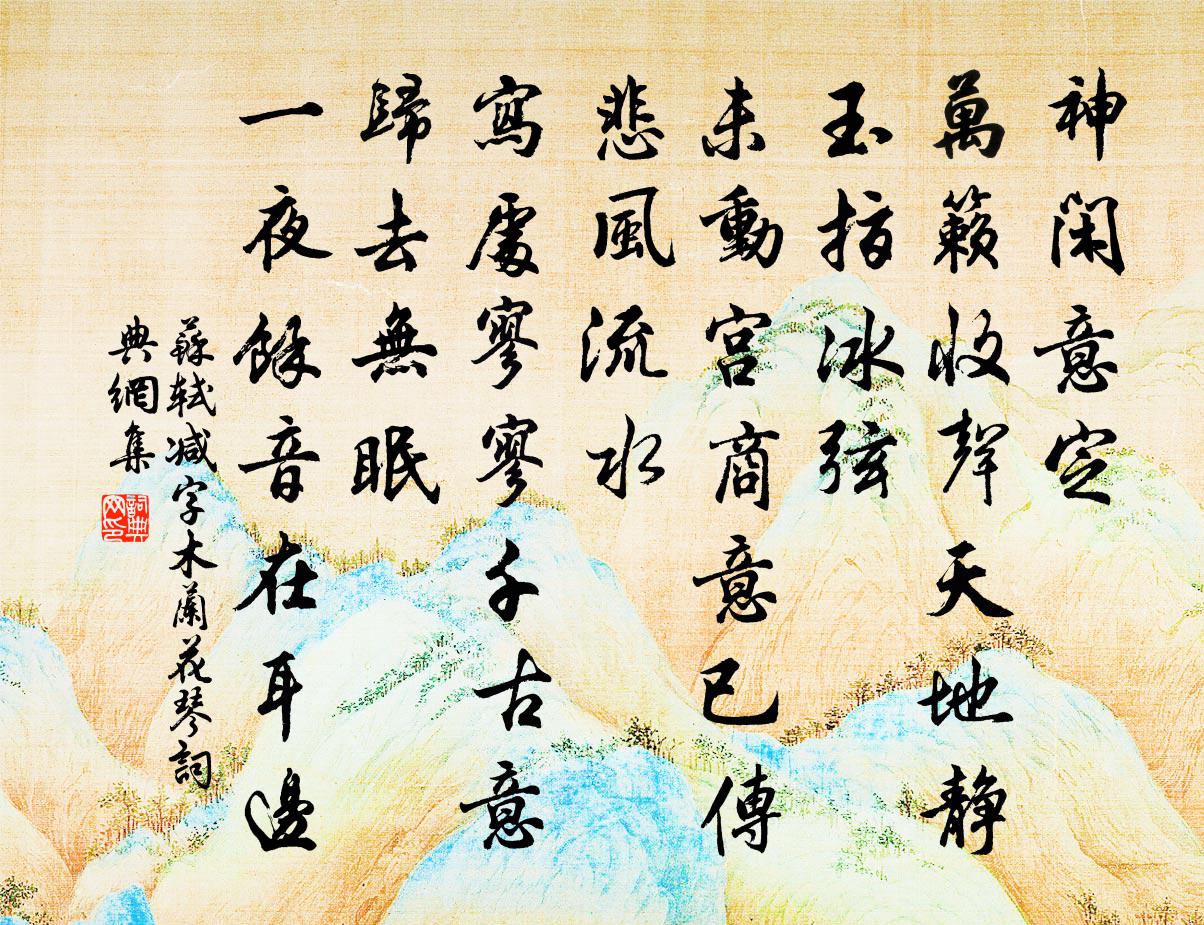 神閑意定
萬籟收聲天地静
玉指冰弦
未動宮商意已傳
悲風流水
寫處寥寥千古意
歸去無眠
一夜餘音在耳邊
蘇軾减字木蘭花琴詞
典網集
詞典網印